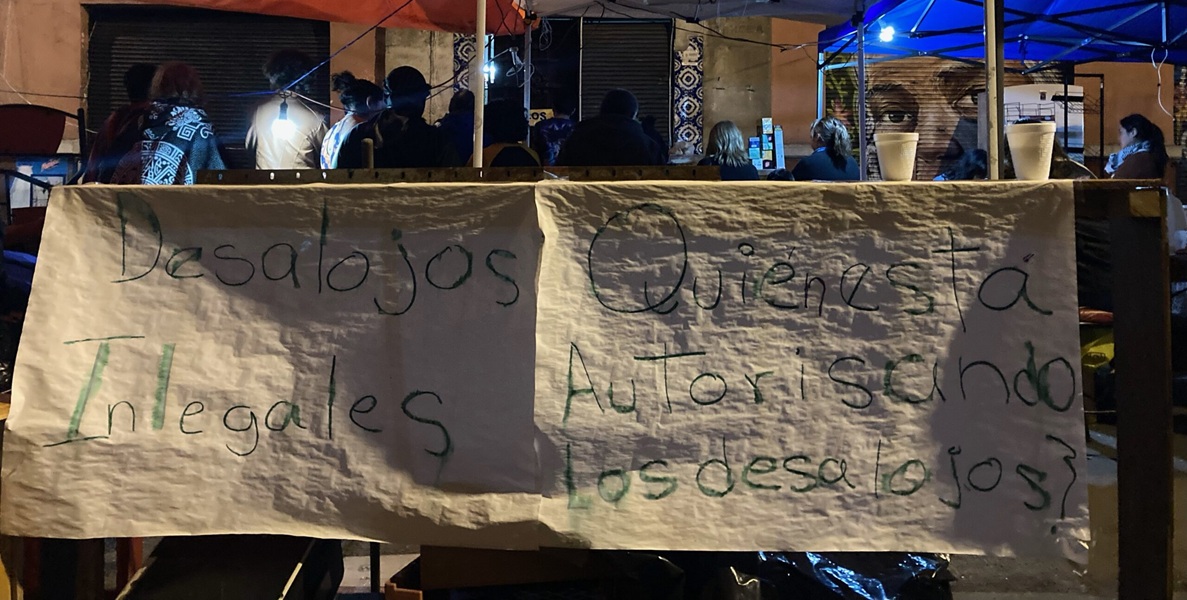 Desalojos
Inlegales
Quién está
Autorisando
Los desalojos?